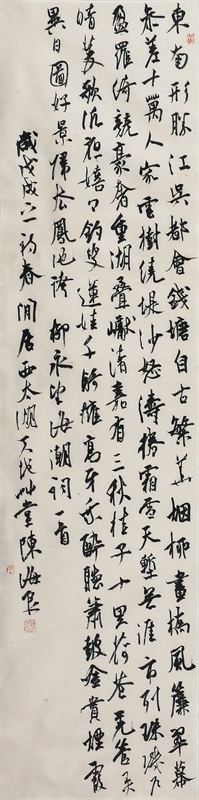 東南形勝江吳都會錢塘自古繁華烟柳畫橋風簾翠幕
參差十萬人家雲樹繞堤沙怒濤捲霜雪天塹無涯市列珠璣戶
盈羅綺競豪奢重湖疊巘清嘉有三秋桂子十里荷花羌管弄
晴菱歌泛夜嬉々釣叟蓮娃千騎擁高牙乘醉聽簫鼓吟賞煙霞
異日圖好景歸去鳳池誇 柳永望海潮詞一首
歲戊戌之初春間居西太湖天堂陳海良